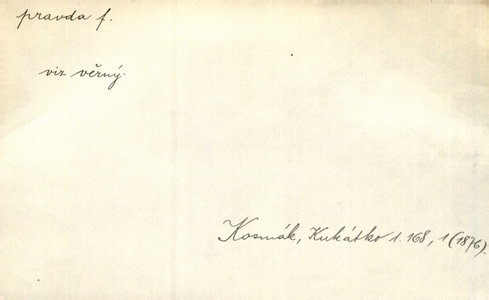 pravda f.
viz věrný.
Kosmák, Kukátko 1. 168, 1 (1876).